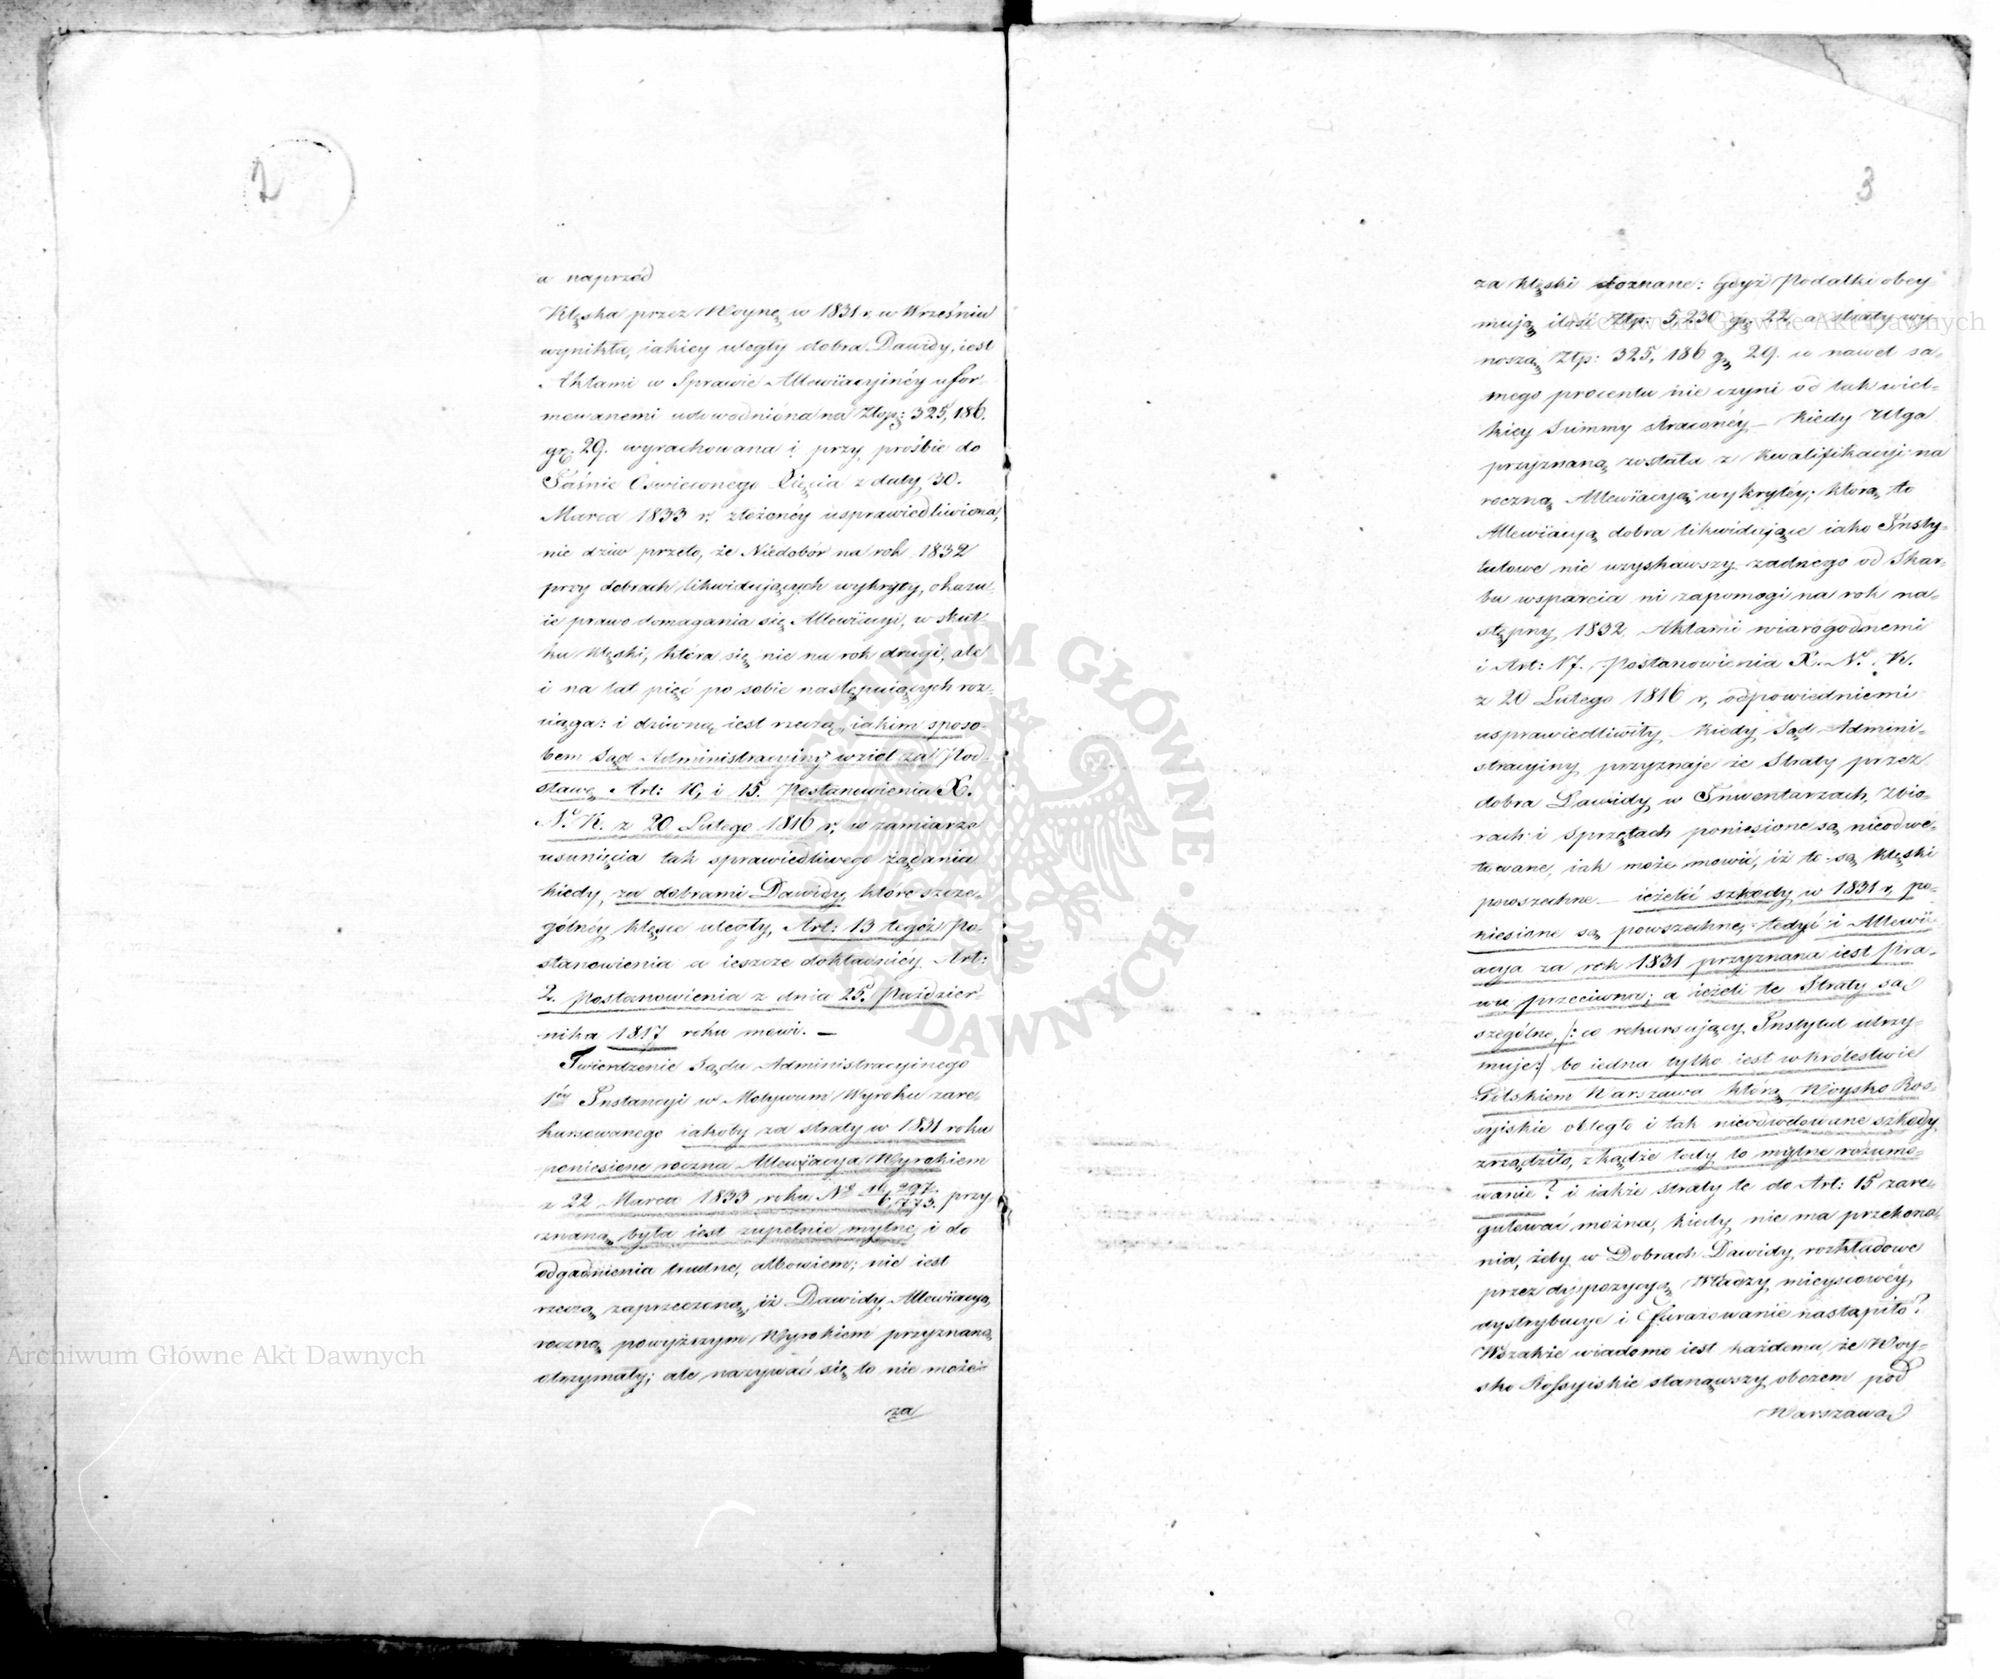 2
a naprzód
Klęska przez Woynę w 1831 r. w Wrześniu
wynikła, iakiey uległy dobra Dawidy, iest
Aktami w Sprawie Allewiiacyinéy ufor-
mowanemi udowodnióna na Złop: 325,186.
gr. 29. wyrachowana i przy prośbie do
Jaśnie Oswieconego Xięcia z daty 30.
Marca 1833 r. złożonéy usprawiedliwiona,
nie dziw przeto, że Niedobór na rok 1832
przy dobrach likwiduiących wykryty, okazu-
ie prawo domagania się Allewiiacyi, w skut-
ku klęski, która się nie na rok drugi, ale
i na lat pięć po sobie następuiących roz-
ciąga: i dziwną iest rzeczą, iakim sposo-
bem Sąd Administracyiny wziął za Pod-
stawę Art: 10, i 15. Postanowienia X.
N. K. z 20 Lutego 1816 r, w zamiarze
usunięcia tak sprawiedliwego żądania
kiedy, za dobrami Dawidy, które szcze-
gólnéy klęsce uległy, Art: 13 tegóż Po-
stanowienia a ieszcze dokładniey Art:
2. Postanowienia z dnia 25. Paździer-
nika 1817 roku mowi. —
Twierdzenie Sądu Administracyinego
1éy Instancyi w Motywum Wyroku zare-
kursowanego iakoby za straty w 1831 roku
poniesione roczna Allewiiacya Wyrokiem
z 22 Marca 1833 roku No 16,297./6,773. przy
znaną była iest zupełnie mylne, i do
odgadnienia trudne, albowiem; nie iest
rzeczą zaprzeczoną, iż Dawidy, Allewiiacyą
roczną powyższym Wyrokiem przyznaną
otrzymały; ale nazywać się to nie może
za
3
za klęski doznane: Gdyż Podatki obey-
muią ilość Złp: 5,230 gr. 22 a straty wy-
noszą Złp: 325,186 gr 29. i nawet sa-
mego procentu nie czyni od tak wiel-
kiey Summy straconéy — kiedy Ulga
przyznaną została z kwalifikacyi na
roczną Allewiiacyą wykrytéy; którą to
Allewiiacyą dobra likwiduiące iako Insty-
tutowe nie uzyskawszy żadnego od Skar-
bu wsparcia ni zapomogi na rok na-
stępny 1832. Aktami wiarogodnemi
i Art: 17. Postanowienia X. N. K.
z 20 Lutego 1816 r, odpowiedniemi
usprawiedliwiły. Kiedy Sąd Admini-
stracyiny przyznaje że Straty przez
dobra Dawidy w Inwentarzach, Zbio-
rach i Sprzętach poniesione są nieodwe-
towane, iak może mowić, iż to są klęski
powszechne. — ieżelić szkody w 1831 r, po-
niesione są powszechne, tedyć i Allewii-
acya za rok 1831 przyznana iest Pra-
wu przeciwna; a ieżeli te Straty są
szególne, /: co rekursuiący Instytut utrzy-
muje:/ bo iedna tylko iest w królestwie
Polskiem Warszawa którą Woysko Ros-
syiskie obległo i tak nieodwetowane szkody
zrządziło, zkądże tedy to mylne rozumo-
wanie? i iakże straty te do Art: 15 zare-
gulować można, kiedy nie ma przekona-
nia, żeby w Dobrach Dawidy, rozkładowe
przez dyspozycyą Władzy mieyscowéy,
dystrybucye i furażowanie nastąpiło?
Wszakże wiadomo iest każdemu, że Woy-
sko Rossyiskie stanąwszy obozem pod
Warszawą